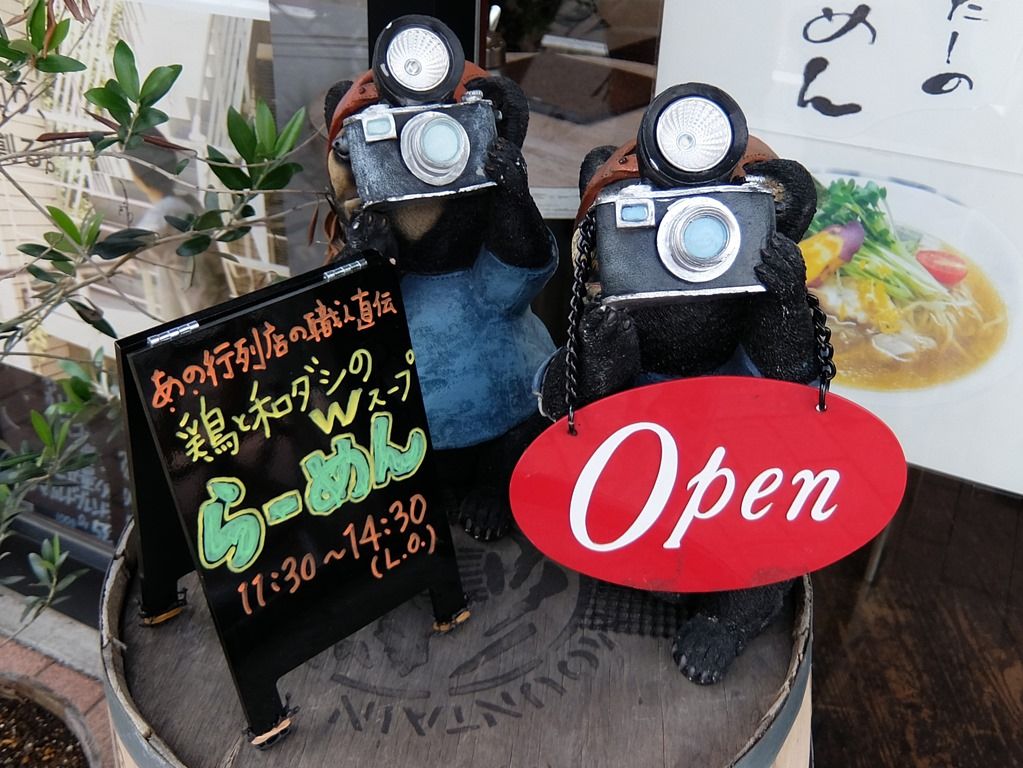 あの行列店の職人直伝
鶏と和ダシの
Wスープ
らーめん
11:30~14:30
(L.O.)
Open
だしの
めん
MOUNTAIN